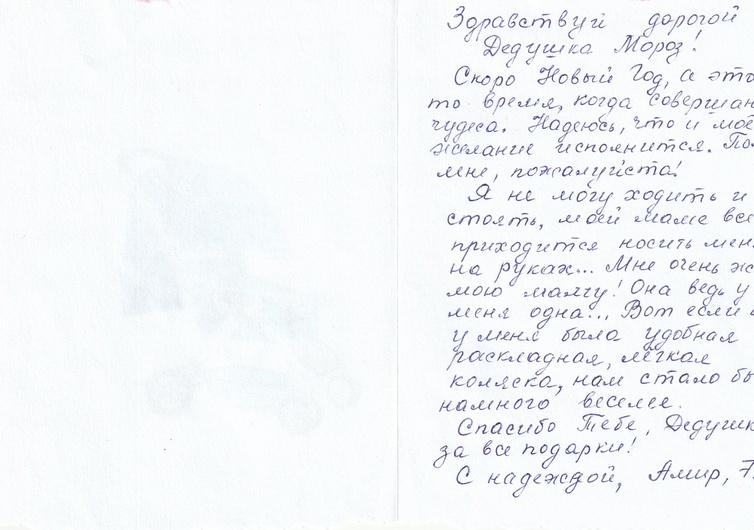 Здравствуй дорогой
Дедушка Мороз!
Скоро Новый Год, а это
то время, когда совершаю
чудеса. Надеюсь, что и моё
желание исполнится. По
мне, пожалуйста!
Я не могу ходить и
стоять, моей маме все
приходится носить мен
на руках... Мне очень ж
мою маму! Она ведь у
меня одна... Вот если
у меня была удобная
раскладная, лёгкая
коляска, нам стало бы
намного веселее.
Спасибо Тебе, Дедушк
за все подарки!
С надеждой, Амир, 7